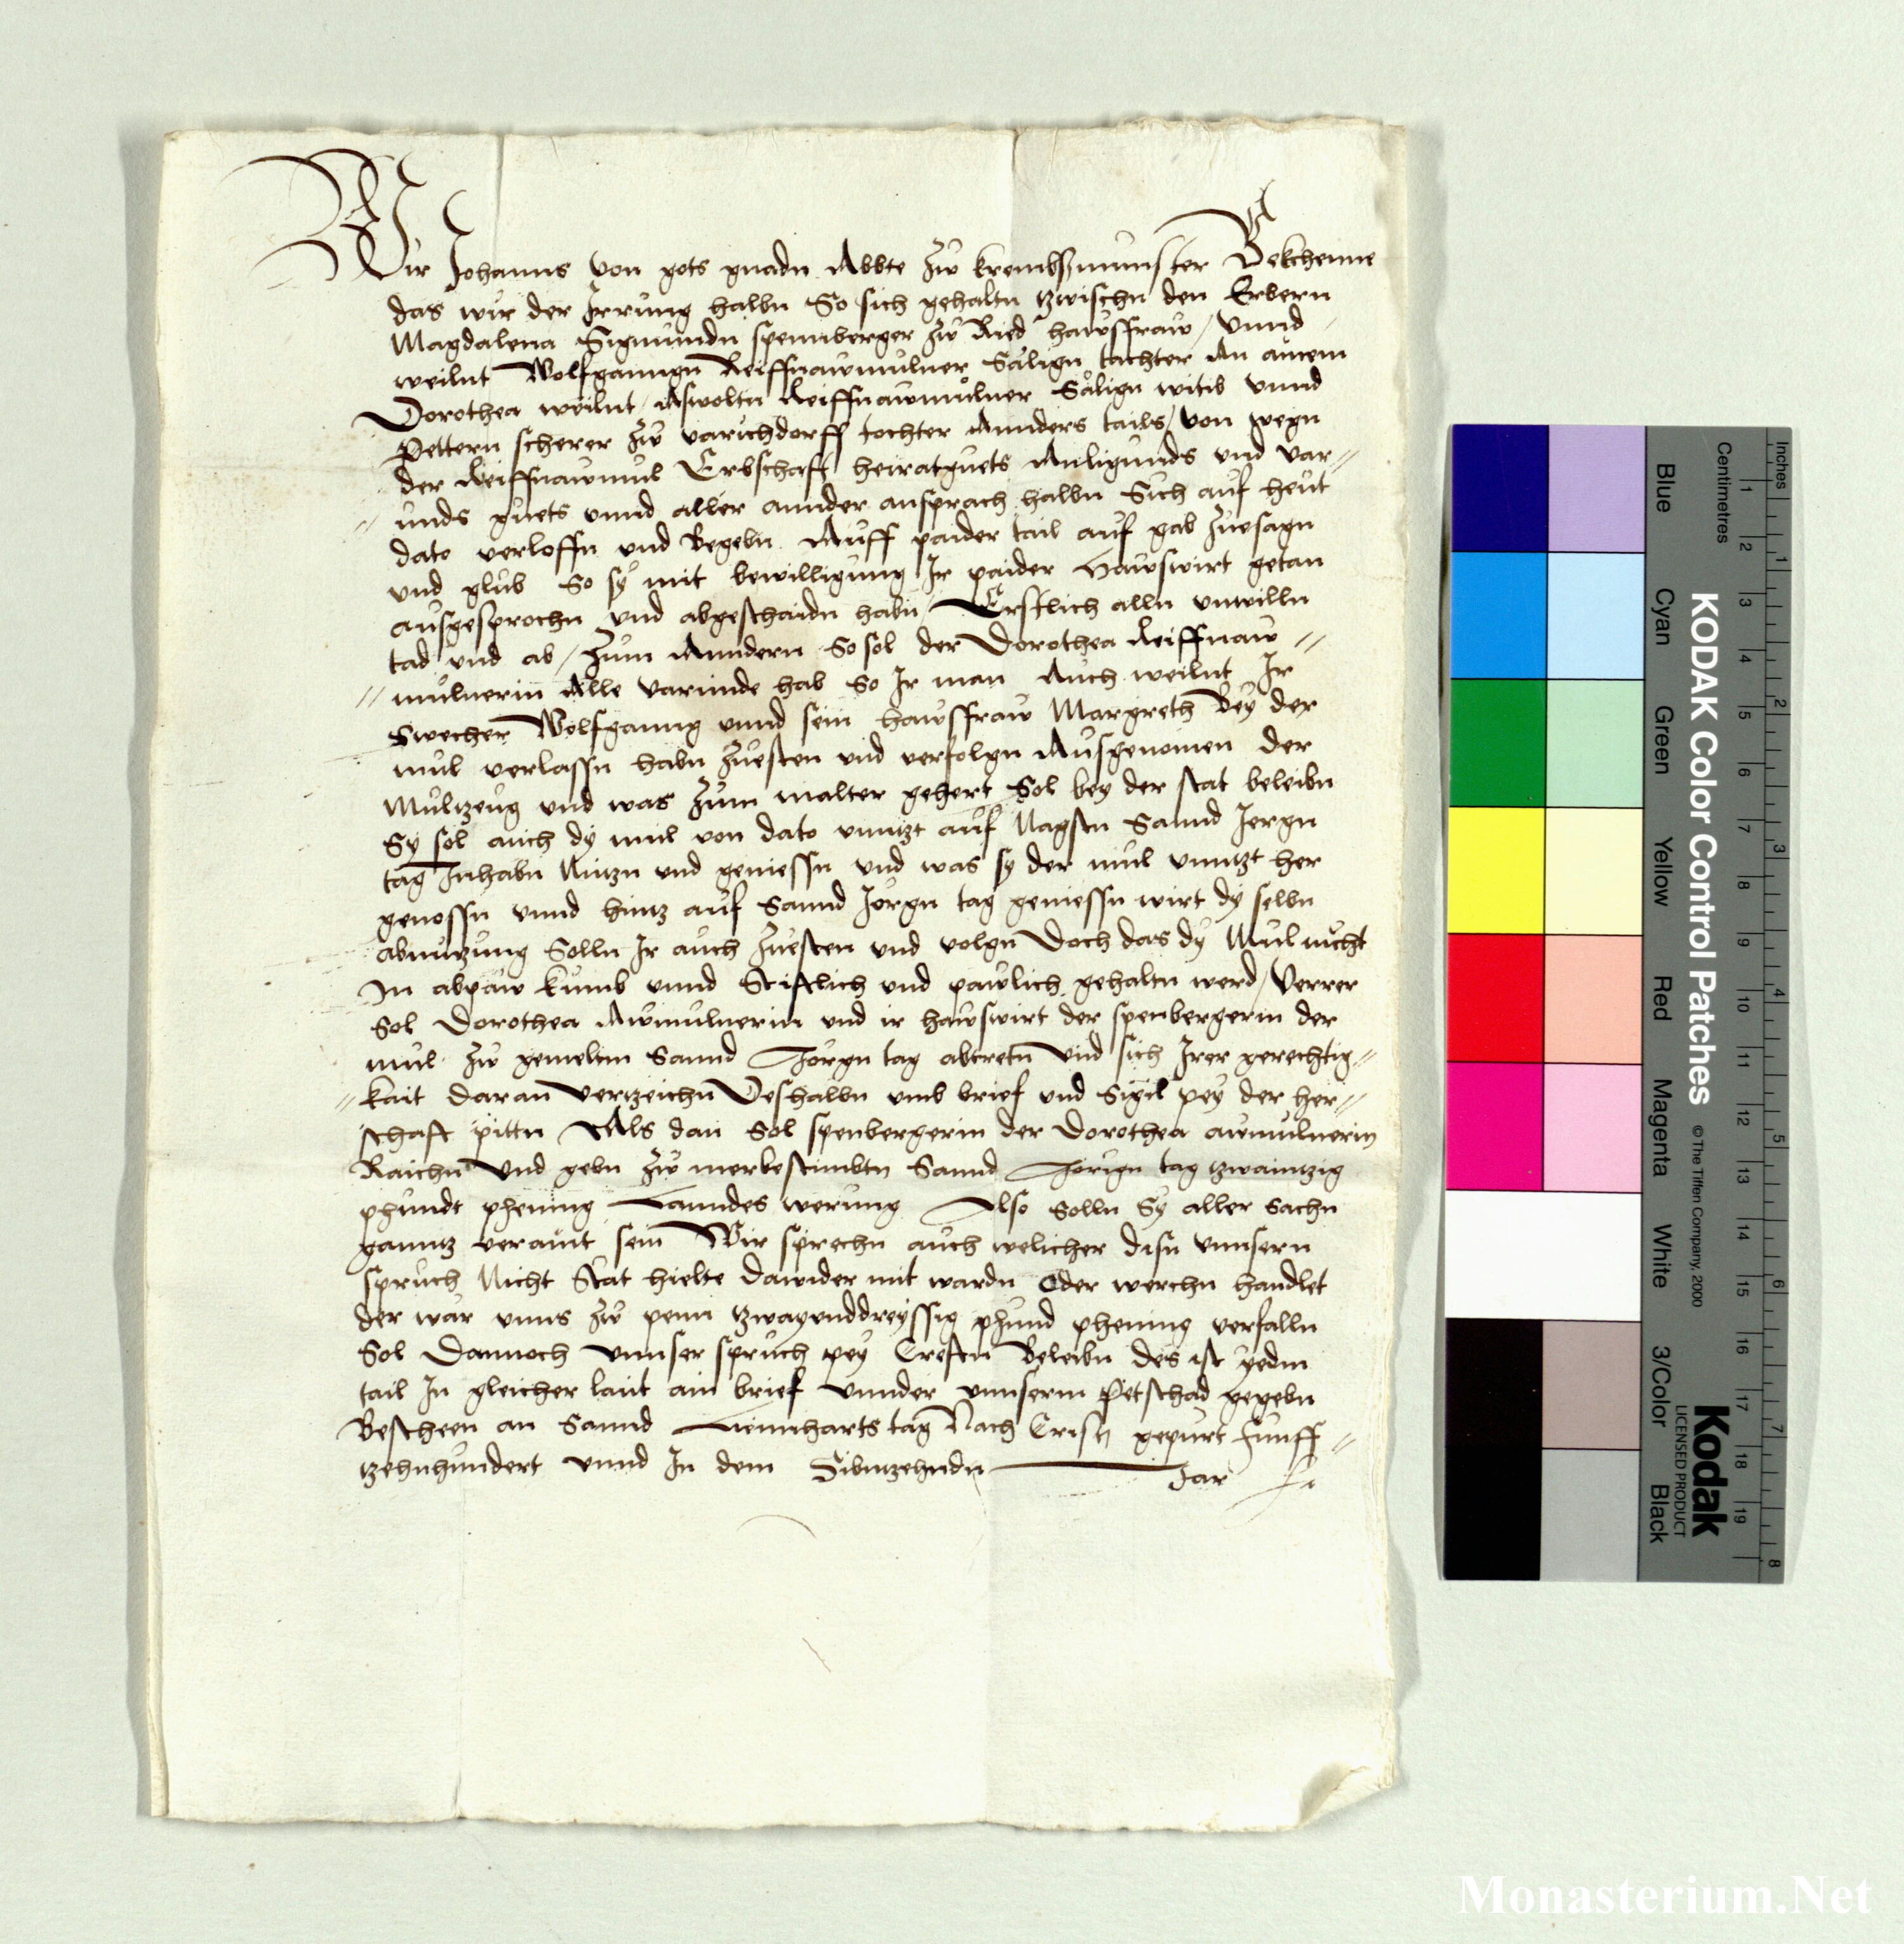 Wir Johanns von gots gnadn Abbte zw krembsmunster Bekhenne
das wir der Irrung halbn So sich gehaltn tzwischn den Erbern
Magdalena Sigmundn spennberger zw Ried hawsfraw / vnnd
weilnt Wolfganngn Reiffnawmulner Säligen tachter An ainem
Dorothea weilnt / Aswoltn Reiffnawmulner Sälign witib vnnd
Pettern scherer zw varichdorff tochter Annders tails / von wegn
der Reiffnawmul Erbschaft heiratguets Anligunds vnd var=
=unds guets vnnd aller annder ansprach halbn Sich auf heut
dato verloffn vnd Begebn Auff paider tail auf gab zuesagn
vnd glub So sy mit bewilligung Ir paider Hawswirt getan
ausgesprochn vnd abgeschaidn habn / Erstlich alln vnwilln
tad vnd ab / Zum Anndern So sol der Dorothea Reiffnaw=
=mulnerin Alle varunde hab So Ir man Auch weilnt Ir
Swecher Wolfganng vnnd sein hawsfraw Margreth Bey der
mul verlassn habn Zuesten vnd verfolgn Ausgenomen der
Mulzeug vnd was zum malter gehert Sol bey der stat beleibn
Sy sol auch dy mul von dato vnntzt auf Nagstn Sannd Jergn
tag Inhabn Nutzn vnd geniessn vnd was sy der mul vnntzt her
genossn vnnd hintz auf Sannd Jörgn tag geniessn wirt dy selbn
abnutzung Solln Ir auch Zuesten vnd volgn Doch das dy Mul nicht
In abpaw kumb vnnd Stiftlich vnd pawlich gehaltn werd / Verrer
Sol Dorothea Awmulnerin vnd ir hawswirt der spenbergerin der
mul zw gemeltm Sannd Jorgn tag abtretn vnd sich Irer gerechtig=
=kait daran vertzeichn Deshalbn vmb brief vnd Sigil pey der her=
schaft pittn Als dan Sol spenbergerin der Dorothea awmulnerin
Raichn vnd gebn zw merbestimbtn Sannd Jorign tag tzwaintzig
phundt phening Lanndes werung Also Solln Sy aller Sachn
ganntz veraint sein Wir sprechn auch welicher disn vnnsern
spruch Nicht Stat hielte dawider mit wordn Oder werchn handlet
der wär vnns zw penn tzwayunddreyssig phund phening verfalln
Sol Dannoch vnnser spruch pey Creftn Beleibn des ist yedm
tail In gleicher laut ain brief vnnder vnnserm Petschad gegebn
Bescheen an Sannd Liennharts tag Nach Cristi gepurt Funff=
tzehnhundert vnnd In dem Sibntzehndn Jar
Inches
Centimetres
1 2 3 4 5 6 7 8 9 10 11 12 13 14 15 16 17 18 19
1 2 3 4 5 6 7 8
KODAK Color Control Patches © The Tiffen Company, 2000
Kodak
LICENSED PRODUCT
Blue Cyan Green Yellow Red Magenta White 3/Color Black
Monasterium.Net